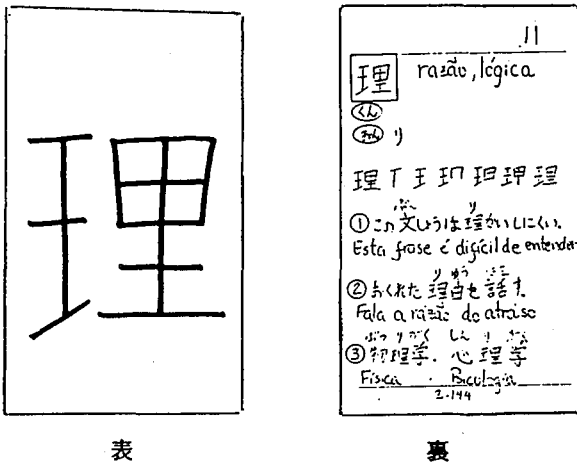 理
表
11
理 razão, lógica
くん
おん り
理 丅 王 玑 玾 理
ぶん り
①この文しょうは理かいしにくい。
Esta frase é difícil de entender
り ゆう はな
②おくれた理由を話す。
Fala a razão do atraso
ぶつりがく しんりがく
③物理学. 心理学
Física . Psicologia
2-144
裏